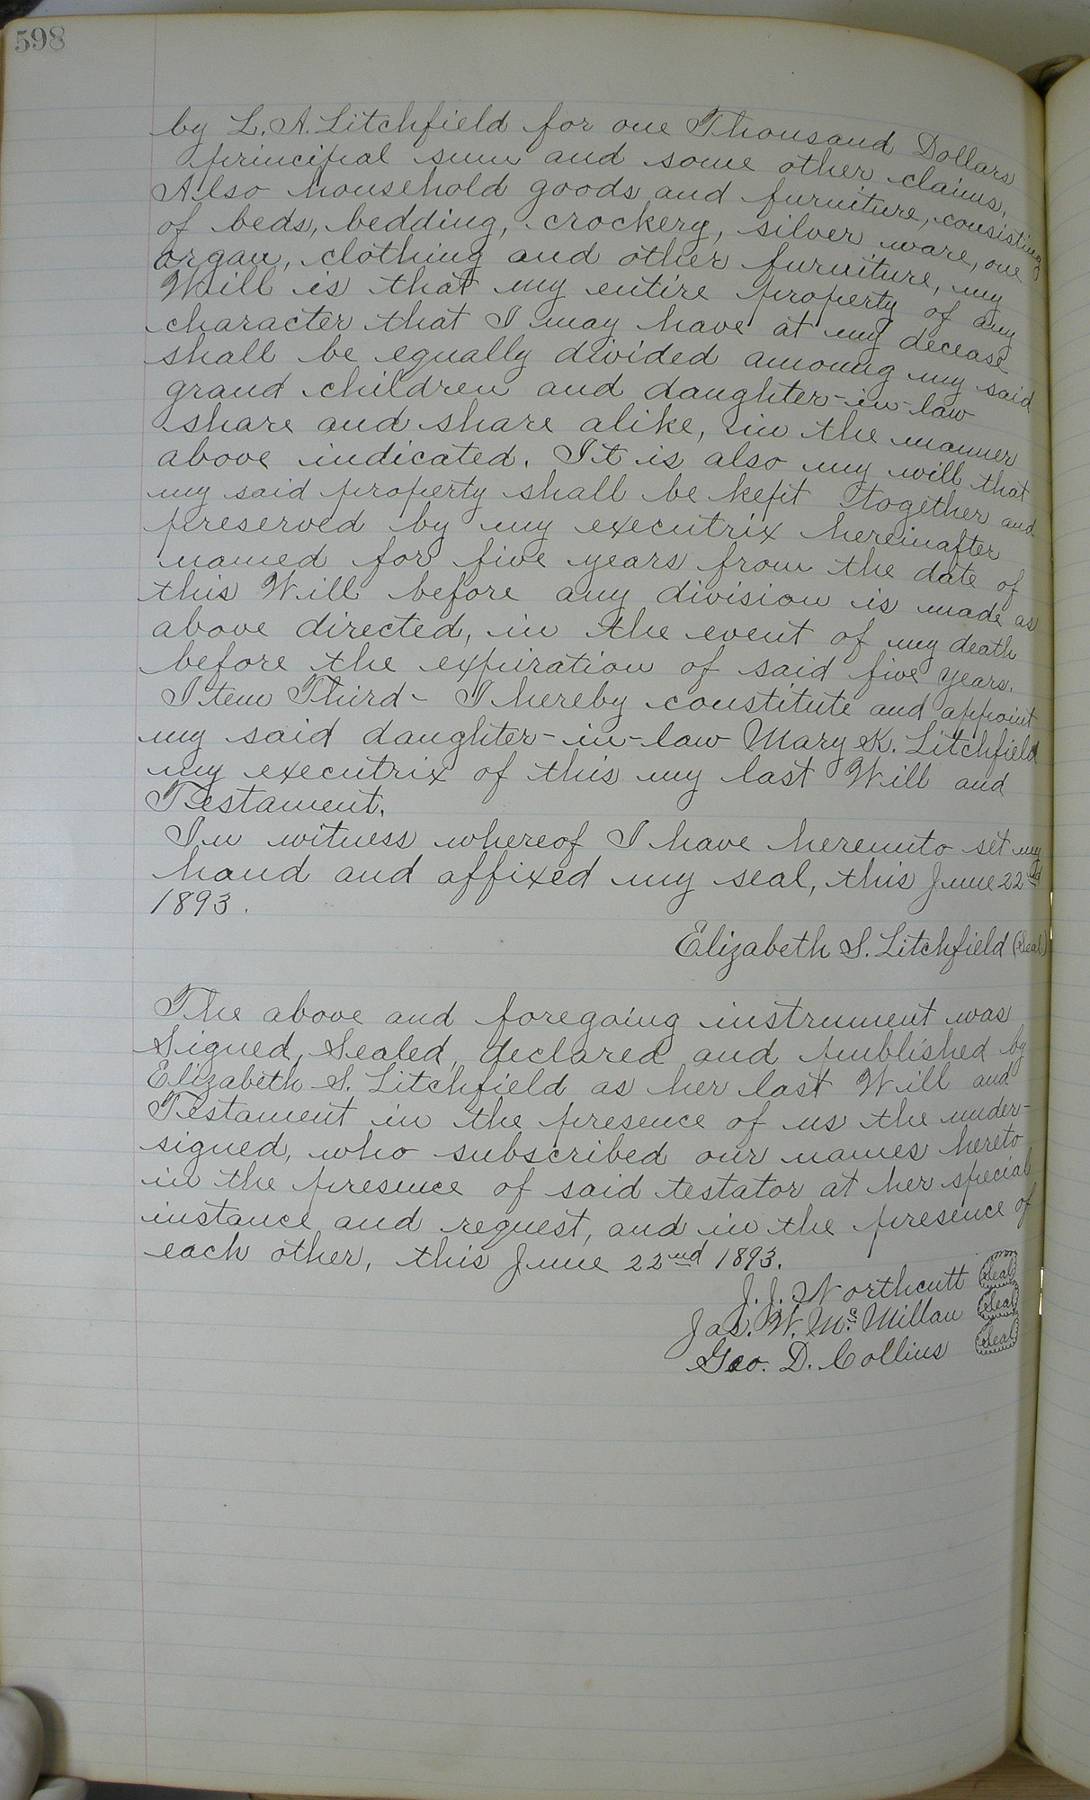 598
by L. A. Litchfield for one Thousand Dollars
principal sum and some other claims.
Also household goods and furniture, consisting
of beds, bedding, crockery, silver ware, one
organ, clothing and other furniture, my
Will is that my entire property of any
character that I may have at my decease
shall be equally divided among my said
grand children and daughter-in-law
share and share alike, in the manner
above indicated. It is also my will that
my said property shall be kept together and
preserved by my executrix hereinafter
named for five years from the date of
this Will before any division is made as
above directed, in the event of my death
before the expiration of said five years.
Item Third - I hereby constitute and appoint
my said daughter-in-law Mary K. Litchfield
my executrix of this my last Will and
Testament.
In witness whereof I have hereunto set my
hand and affixed my seal, this June 22nd
1893.
Elizabeth S. Litchfield (Seal)
The above and foregoing instrument was
Signed, Sealed, declared and published by
Elizabeth S. Litchfield as her last Will and
Testament in the presence of us the under-
signed, who subscribed our names hereto
in the presence of said testator at her special
instance and request, and in the presence of
each other, this June 22nd 1893.
J. J. Northcutt Seal
Jas. W. McMillan Seal
Geo. D. Collins Seal